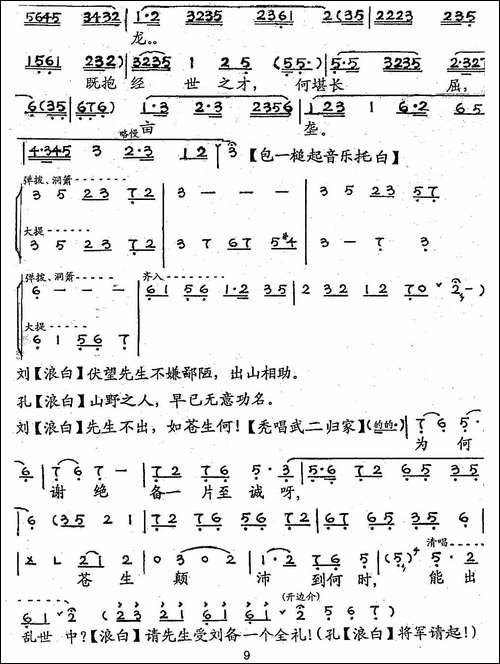 5645 3432 | 1·2 3235 2361 2(35 | 2223 235
龙。
1561 232) | 3235 1 2 5 (55·) | 5·5 3235 2·327
既抱 经 世 之才, 何堪长 屈,
6(35 676) 1·3 2·3 2356 | 123 1 6·2 65
亩 垄。
略慢
4·345 3 2·3 12 3 【包一槌起音乐托白】
弹拨、洞箫
3 5 23 72 | 3 — — — | 3 5 23 57
大提
3 5 23 72 | 3 7 67 5#4 | 3 — 7 3
弹拨、洞箫 齐入
6 — — — | 61 56 1·2 35 | 2 32 12 70 2 —)
大提
6 1 56 7
刘【浪白】伏望先生不嫌鄙陋,出山相助。
孔【浪白】山野之人,早已无意功名。
刘【浪白】先生不出,如苍生何!【秃唱武二归家】(的的·) | 7 6 5·
为 何
6 | 7 6 7 — | 72 76 5·3 | 5·6 72 65 35
谢 绝 备一 片至 诚 呀,
6 (35 2 1 | 72 76 56 72 | 67 65 35 6
清唱
X L 21 2 | 0 3 0 2 | 1·2 76 5 | (5) 5·2
苍 生 颠 沛 到何 时, 能 出
(开边介)
61 2 2 3 2 1 2 2 5 6 7)
乱世 中?【浪白】请先生受刘备一个全礼!(孔【浪白】将军请起!)
9